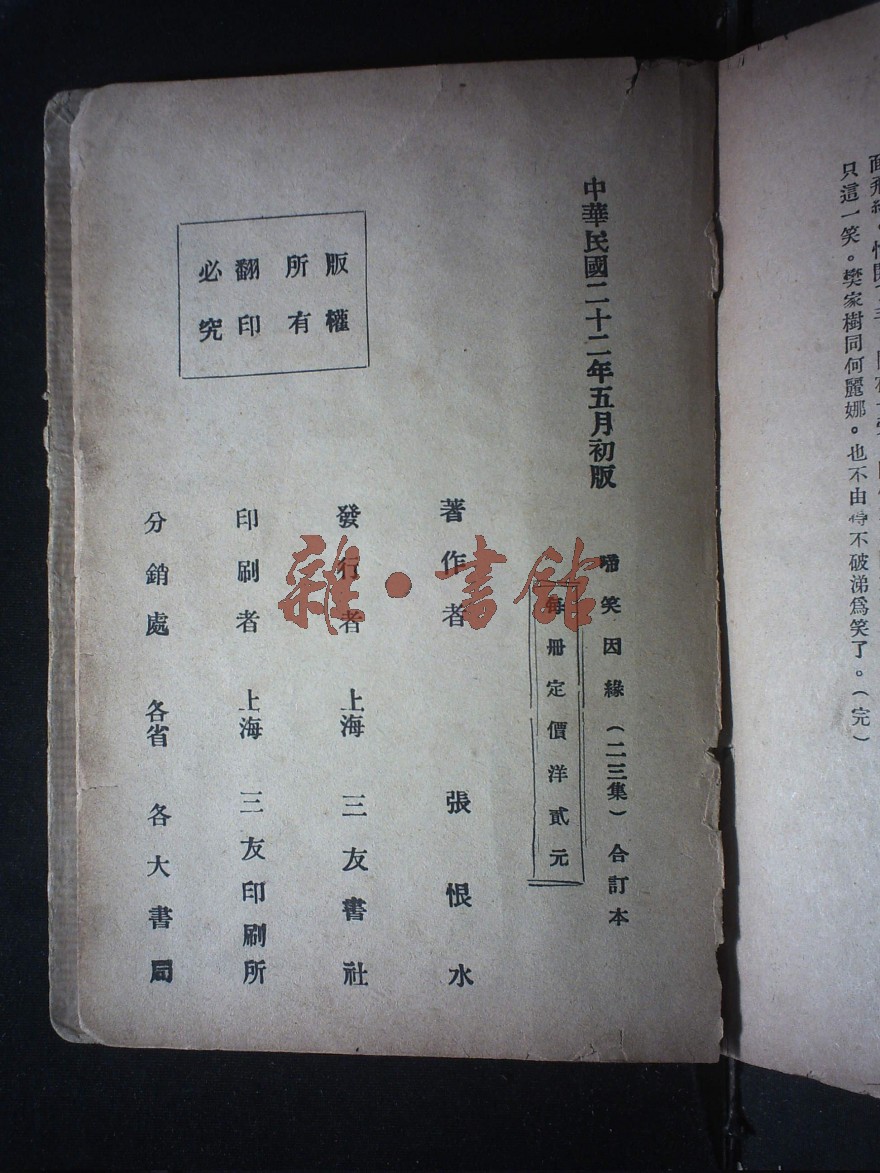 只這一笑。樊家樹同何麗娜。也不由得不破涕爲笑了。(完)
中華民國二十二年五月初版
啼笑因緣(二三集)合訂本
每冊定價洋貳元
著作者 張恨水
發行者 上海 三友書社
印刷者 上海 三友印刷所
分銷處 各省 各大書局
版權
所有
翻印
必究
雜·書館